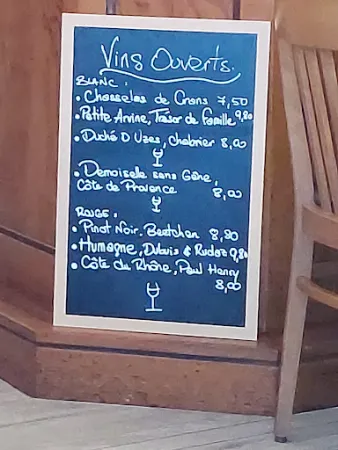 Vins Ouverts.
BLANC :
• Chasselas de Crans 7,50
• Petite Arvine, Trésor de famille 9,80
• Duché D Uzes, Chabrier 8,00
• Demoiselle sans Gêne,
Côte de Provence 8,00
ROUGE :
• Pinot Noir. 8,90
• Humagne, Dubuis & Rudaz 9,80
• Côte du Rhône, Paul Henry
8,00